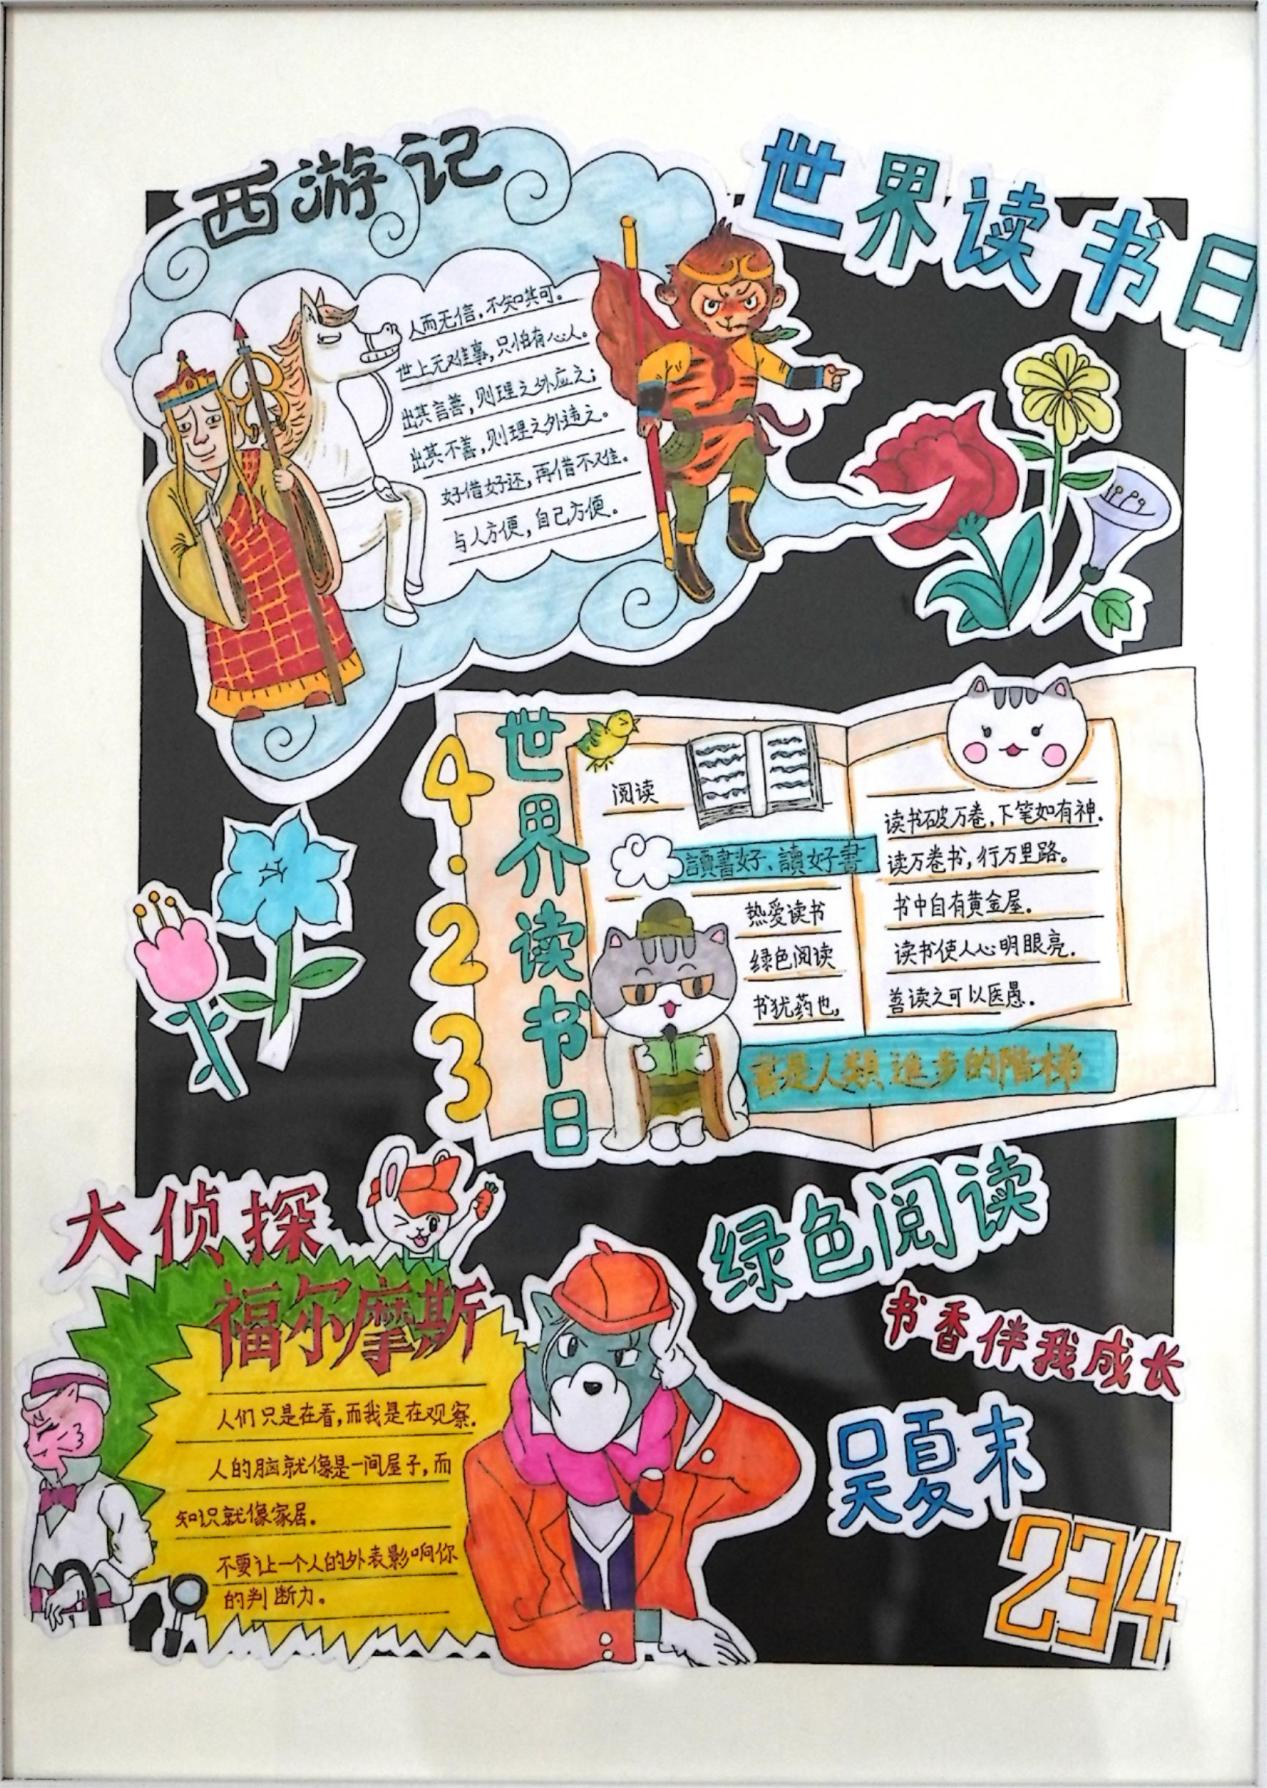 西游记
世界读书日
人而无信，不知其可。
世上无难事，只怕有心人。
出其言善，则理之外应之；
出其不善，则理之外违之。
好借好还，再借不难。
与人方便，自己方便。
4.23
世界读书日
阅读
讀書好、讀好書
热爱读书
绿色阅读
书犹药也，
读书破万卷，下笔如有神.
读万卷书，行万里路。
书中自有黄金屋.
读书使人心明眼亮.
善读之可以医愚.
書是人類進步的階梯
大侦探
福尔摩斯
人们只是在看，而我是在观察.
人的脑就像是一间屋子，而
知识就像家居.
不要让一个人的外表影响你
的判断力.
绿色阅读
书香伴我成长
吴夏末
234